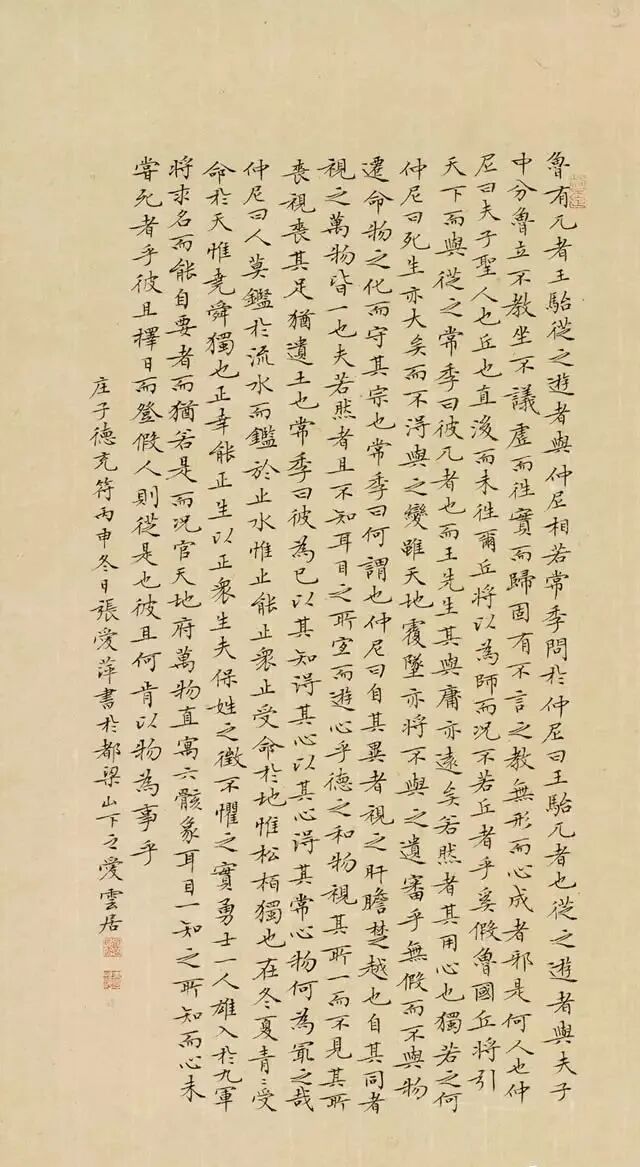 魯有兀者王駘從之遊者與仲尼相若常季問於仲尼曰王駘兀者也從之遊者與夫子
中分魯立不教坐不議虛而往實而歸固有不言之教無形而心成者邪是何人也仲
尼曰夫子聖人也丘也直後而未往爾丘將以為師而況不若丘者乎奚假魯國丘將引
天下而與從之常季曰彼兀者也而王先生其與庸亦遠矣若然者其用心也獨若之何
仲尼曰死生亦大矣而不得與之變雖天地覆墜亦將不與之遺審乎無假而不與物
遷命物之化而守其宗也常季曰何謂也仲尼曰自其異者視之肝膽楚越也自其同者
視之萬物皆一也夫若然者且不知耳目之所宜而遊心乎德之和物視其所一而不見其所
喪視喪其足猶遺土也常季曰彼為已以其知得其心以其心得其常心物何為冣之哉
仲尼曰人莫鑑於流水而鑑於止水惟止能止衆止受命於地惟松柏獨也在冬夏青〻受
命於天惟堯舜獨也正幸能正生以正衆生夫保姓之徵不懼之實勇士一人雄入於九軍
將求名而能自要者而猶若是而況官天地府萬物直寓六骸象耳目一知之所知而心未
嘗死者乎彼且擇日而登假人則從是也彼且何肯以物為事乎
庄子德充符丙申冬日張愛萍書於都梁山下之愛雲居